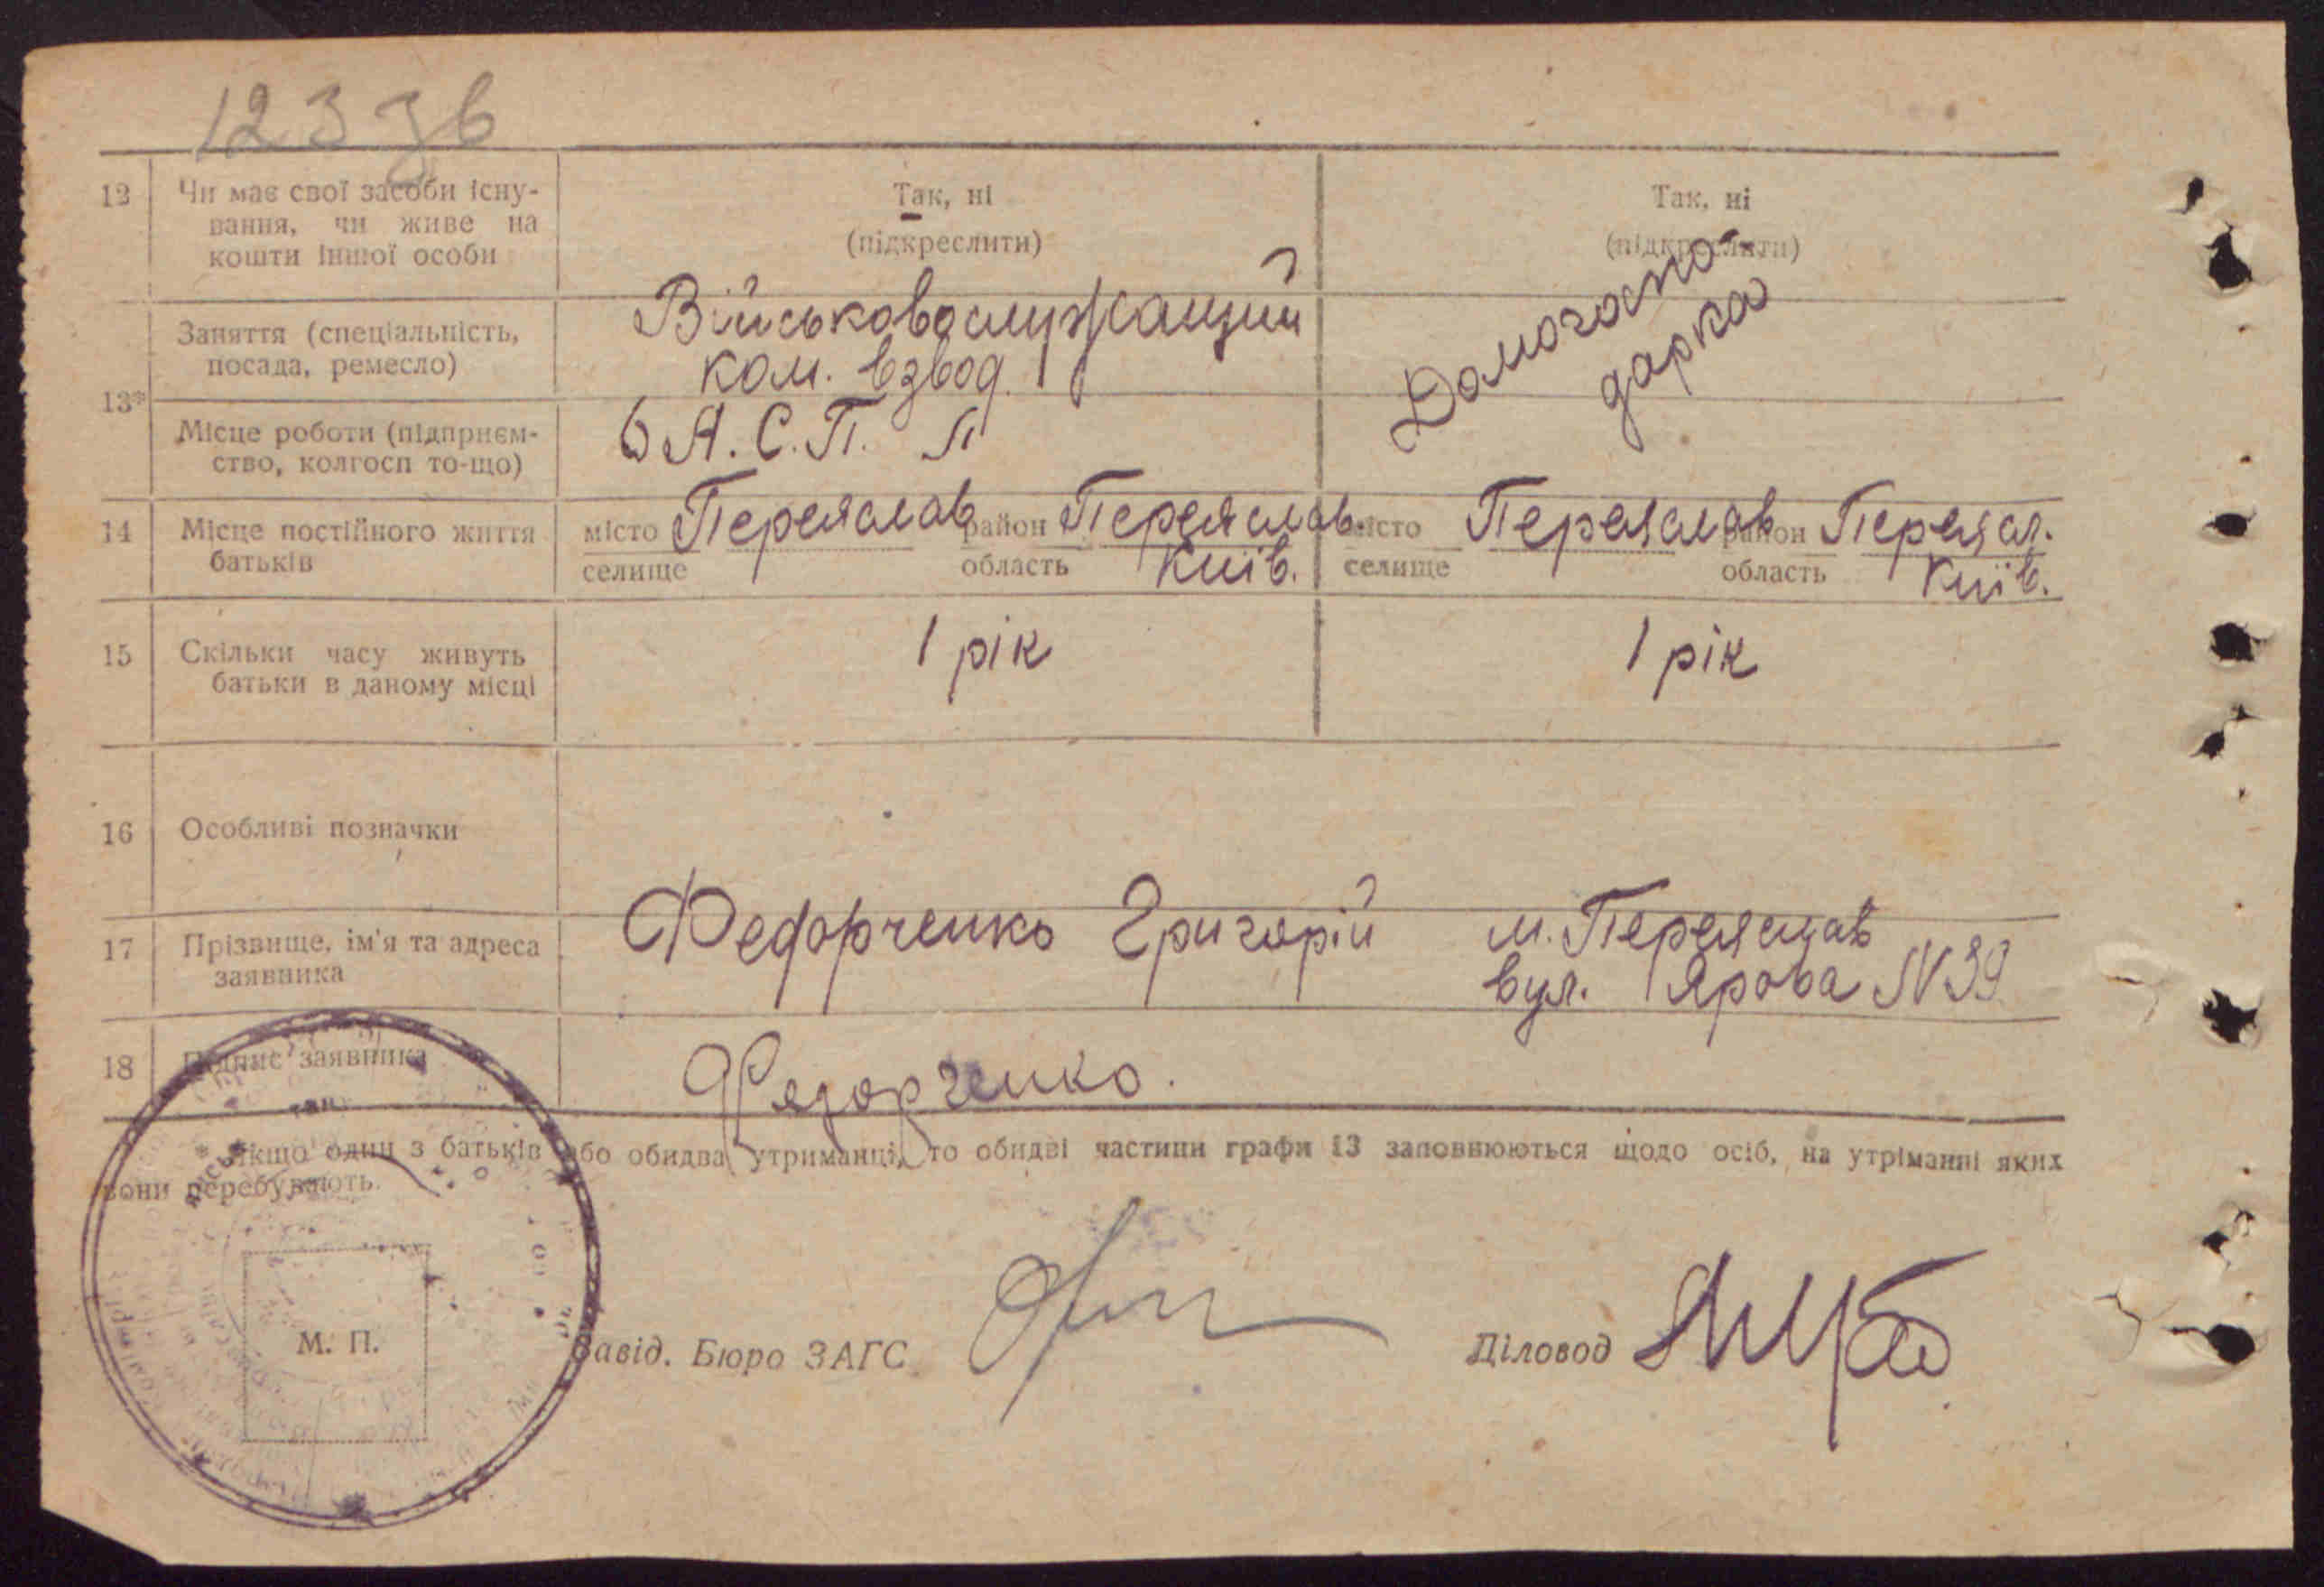 123 зв
12 Чи має свої засоби існу-
вання, чи живе на
кошти іншої особи
Так, ні
(підкреслити)
Так, ні
(підкреслити)
13*
Заняття (спеціальність,
посада, ремесло)
Військовослужащий
ком. взвод.
Домогоспо-
дарка
Місце роботи (підприєм-
ство, колгосп то-що)
А. С. П.
14 Місце постійного життя
батьків
місто Переяслав район Переяслав.
селище область Київ.
місто Переяслав район Переясл.
селище область Київ.
15 Скільки часу живуть
батьки в даному місці
1 рік
1 рік
16 Особливі позначки
17 Прізвище, ім'я та адреса
заявника
Федорченко Григорій
м. Переяслав
вул. Ярова N 39
18 Підпис заявника
Федорченко.
* Якщо один з батьків або обидва утриманці, то обидві частини графи 13 заповнюються щодо осіб, на утріманні яких
вони перебувають.
М. П.
Завід. Бюро ЗАГС
Діловод